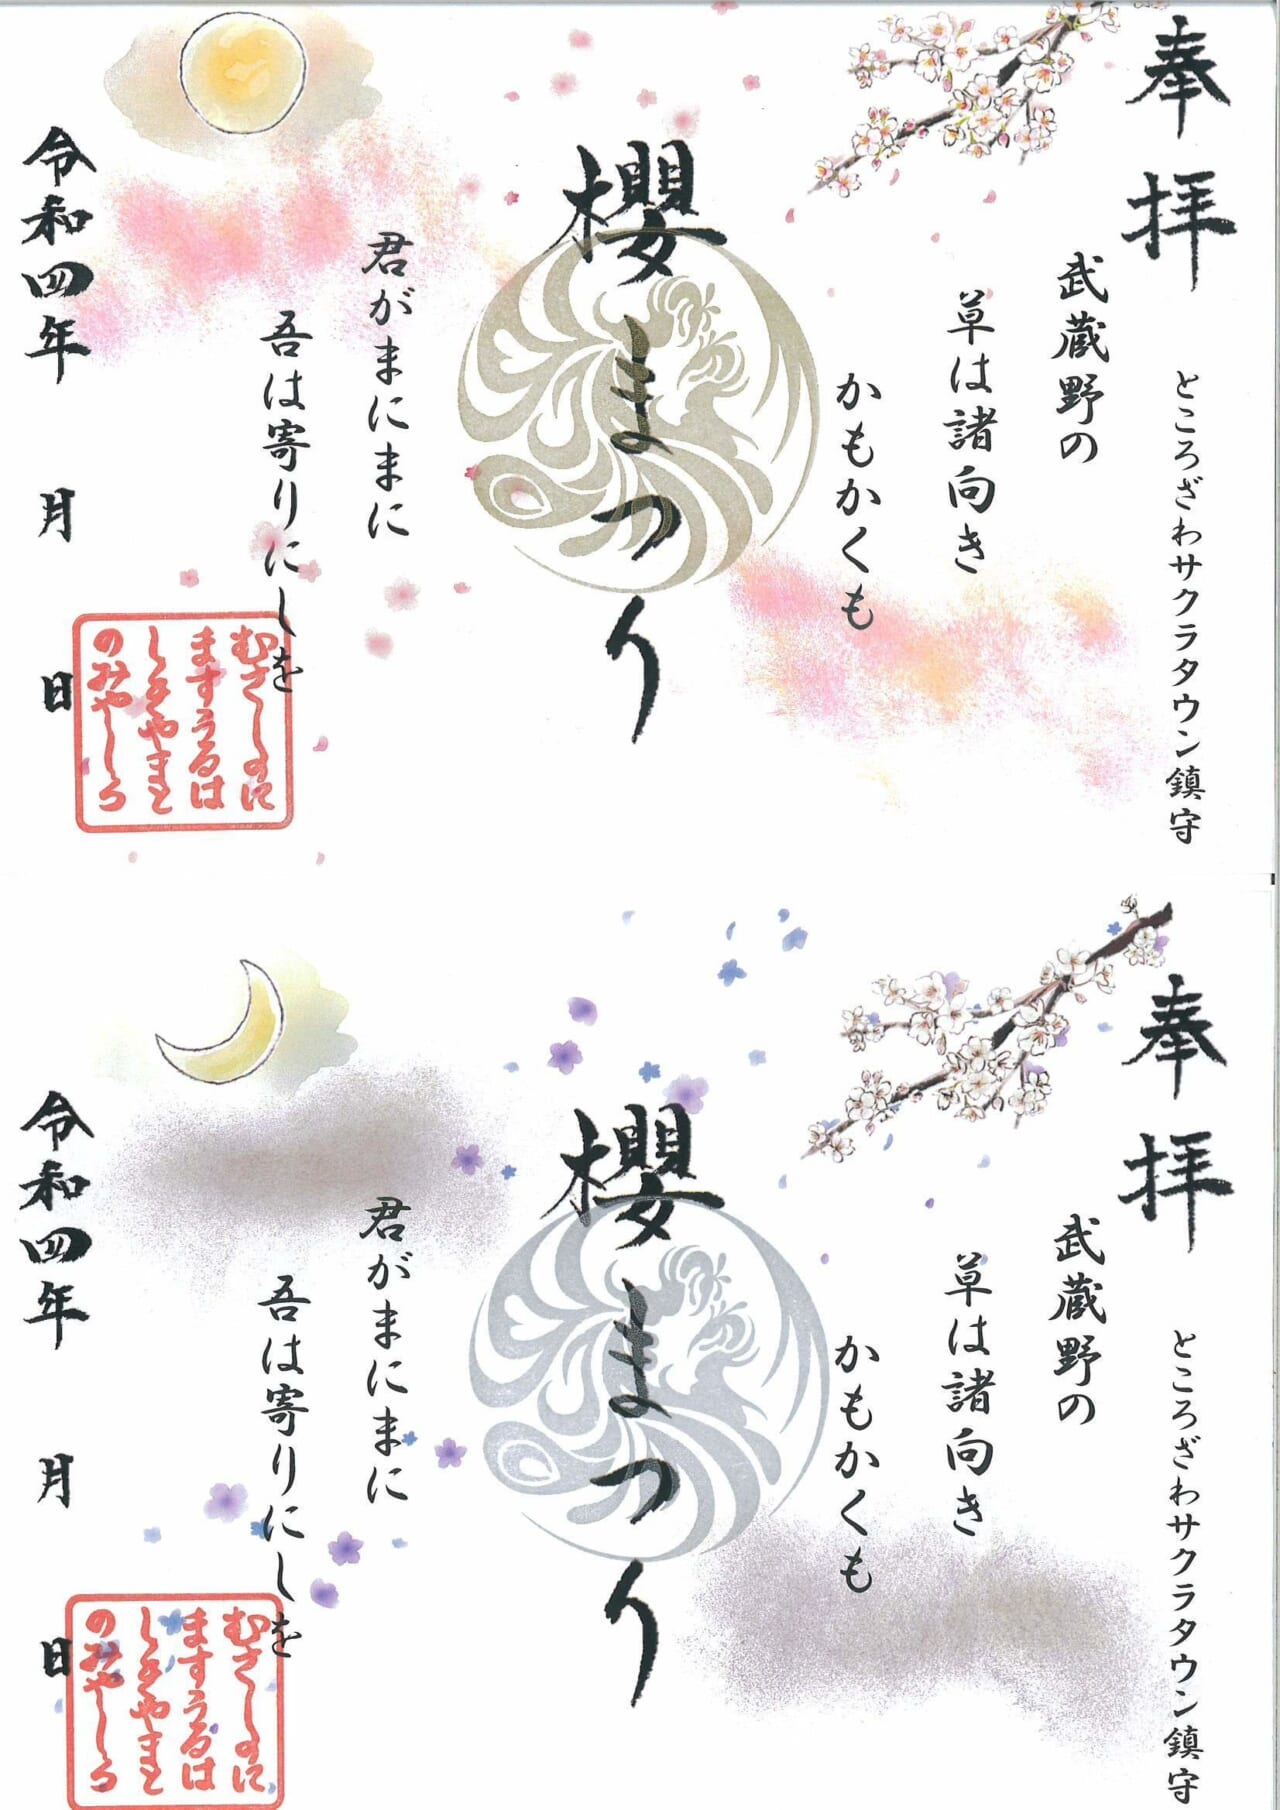 奉拝
ところざわサクラタウン鎮守
武蔵野の
草は諸向き
かもかくも
櫻まつり
君がまにまに
吾は寄りにしを
令和四年 月 日
むさしのに
ますうるは
しきやまと
のみやしろ
奉拝
ところざわサクラタウン鎮守
武蔵野の
草は諸向き
かもかくも
櫻まつり
君がまにまに
吾は寄りにしを
令和四年 月 日
むさしのに
ますうるは
しきやまと
のみやしろ